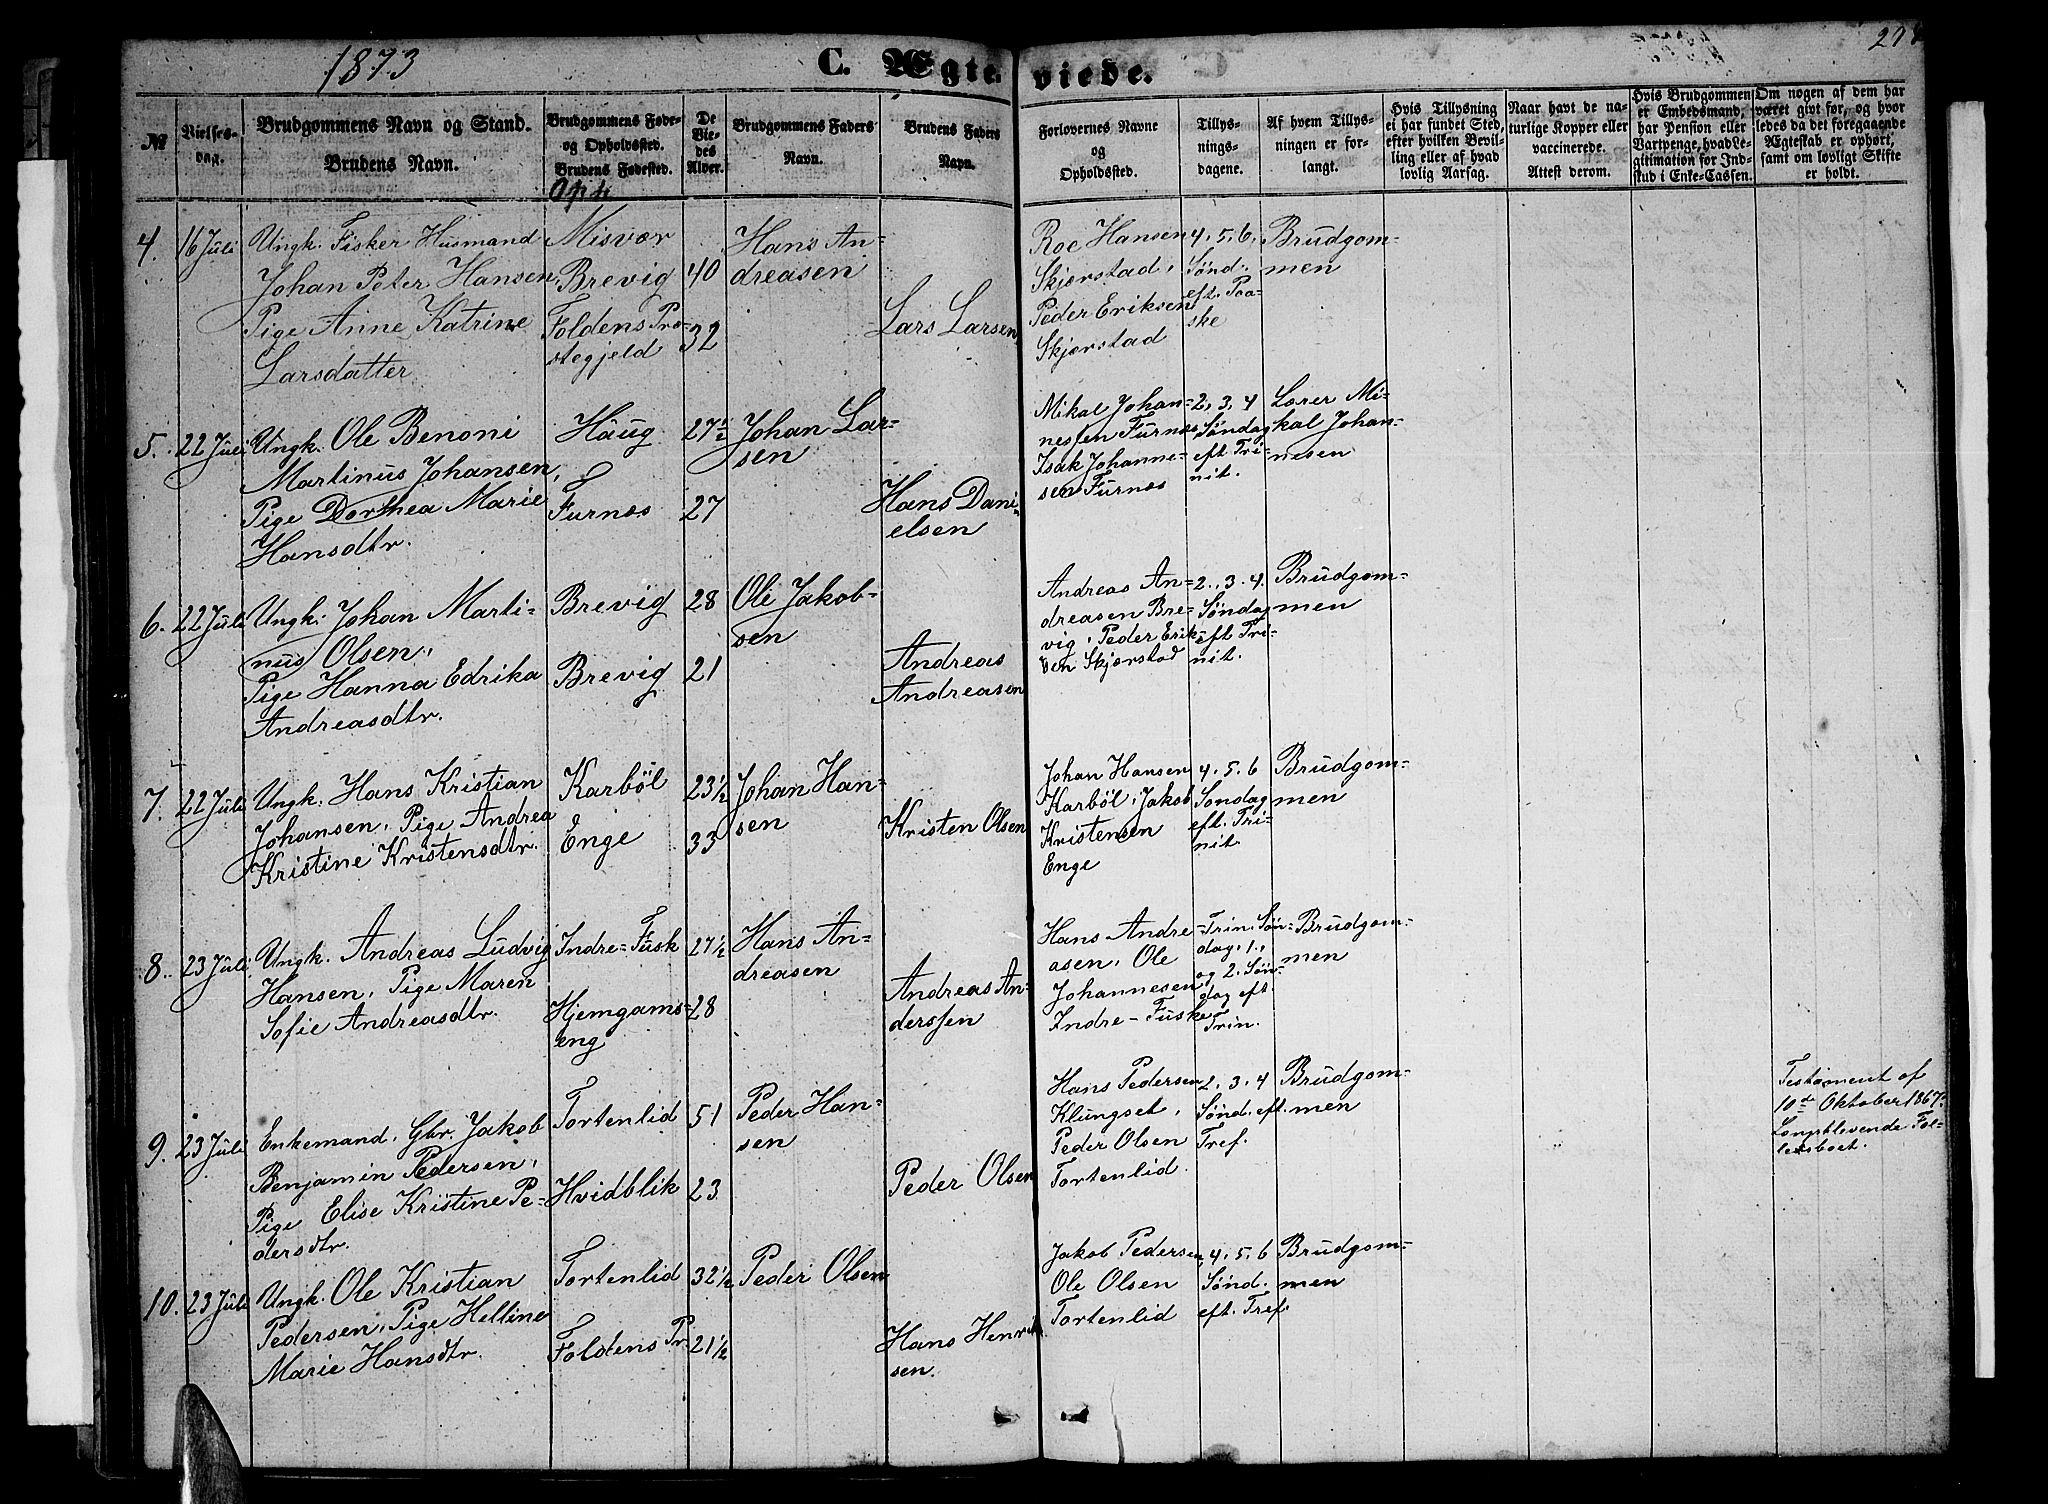 1873
C. Ægte-
viede.
№
Vielses-
dag.
Brudgommens Navn og Stand.
Brudens Navn.
Brudgommens Føde-
og Opholdssted.
Brudens Fødested.
De
Vie-
des
Alder.
Brudgommens Faders
Navn.
Brudens Faders
Navn.
Forlovernes Navne
og
Opholdssted.
Tillys-
nings-
dagene.
Af hvem Tillys-
ningen er for-
langt.
Hvis Tillysning
ei har fundet Sted,
efter hvilken Bevil-
ling eller af hvad
lovlig Aarsag.
Naar havt de na-
turlige Kopper eller
vaccinerede.
Attest derom.
Hvis Brudgommen
er Embedsmand,
har Pension eller
Vartpenge, hvad Le-
gitimation for Ind-
skud i Enke-Cassen.
Om nogen af dem har
været givt før, og hvor
ledes da det foregaaende
Ægtestad er ophørt,
samt om lovligt Skifte
er holdt.
4.
16 Juli
Ungk. Fisker Husmand
Johan Peter Hansen,
Pige Anne Katrine
Larsdatter
Misvær
Brevig
Foldens Præ-
stegjeld
40
32
Hans An-
dreasen
Lars Larsen
Roe Hansen
Skjærstad,
Peder Eriksen
Skjærstad
4, 5, 6,
Sønd.
eft. Paa-
ske
Brudgom-
men
5.
22 Juli
Ungk. Ole Benoni
Martinus Johansen,
Pige Dorthea Marie
Hansdtr.
Haug
Furnæs
27 1/2
27
Johan Lar-
sen
Hans Dani-
elsen
Mikal Johan-
nessen Furnæs
Isak Johanne-
sen Furnæs
2, 3, 4
Søndag
eft Tri-
nit.
Lærer Mi-
kal Johan-
nesen
6.
22 Juli
Ungk. Johan Marti-
nus Olsen,
Pige Hanna Edrika
Andreasdtr.
Brevig
Brevig
28
21
Ole Jakob-
sen
Andreas
Andreasen
Andreas An-
dreasen Bre-
vig, Peder Erik-
sen Skjærstad
2, 3, 4.
Søndag
eft Tri-
nit.
Brudgom-
men
7.
22 Juli
Ungk. Hans Kristian
Johansen, Pige Andrea
Kristine Kristensdtr.
Karbøl
Enge
23 1/2
33
Johan Han-
sen
Kristen Olsen
Johan Hansen
Karbøl, Jakob
Kristensen
Enge
4. 5. 6
Søndag
eft. Tri-
nit.
Brudgom-
men
8.
23 Juli
Ungk. Andreas Ludvig
Hansen, Pige Maren
Sofie Andreasdtr.
Indre-Fusk
Hjemgams-
eng
27 1/2
28
Hans An-
dreasen
Andreas An-
derssen
Hans Andre-
asen, Ole
Johannesen,
Indre-Fuske
Trin. Søn-
dag, 1.,
og 2. Søn-
dag eft
Trin.
Brudgom-
men
9.
23 Juli
Enkemand, Gbr. Jakob
Benjamin Pedersen,
Pige Elise Kristine Pe-
dersdtr.
Tortenlid
Hvidblik
51
23
Peder Han-
sen
Peder Olsen
Hans Pedersen
Klungset,
Peder Olsen
Tortenlid.
2, 3, 4
Sønd. eft.
Tref.
Brudgom-
men
Testament af
10de Oktober 1867.
Længstlevende Fæl-
lesboet.
10.
23 Juli
Ungk. Ole Kristian
Pedersen, Pige Helline
Marie Hansdtr.
Tortenlid
Foldens Pr.
32 1/2
21 1/2
Peder Olsen
Hans Henrik
sen.
Jakob Pedersen,
Ole Olsen
Tortenlid
4, 5, 6
Sønd.
eft. Tref.
Brudgom-
men